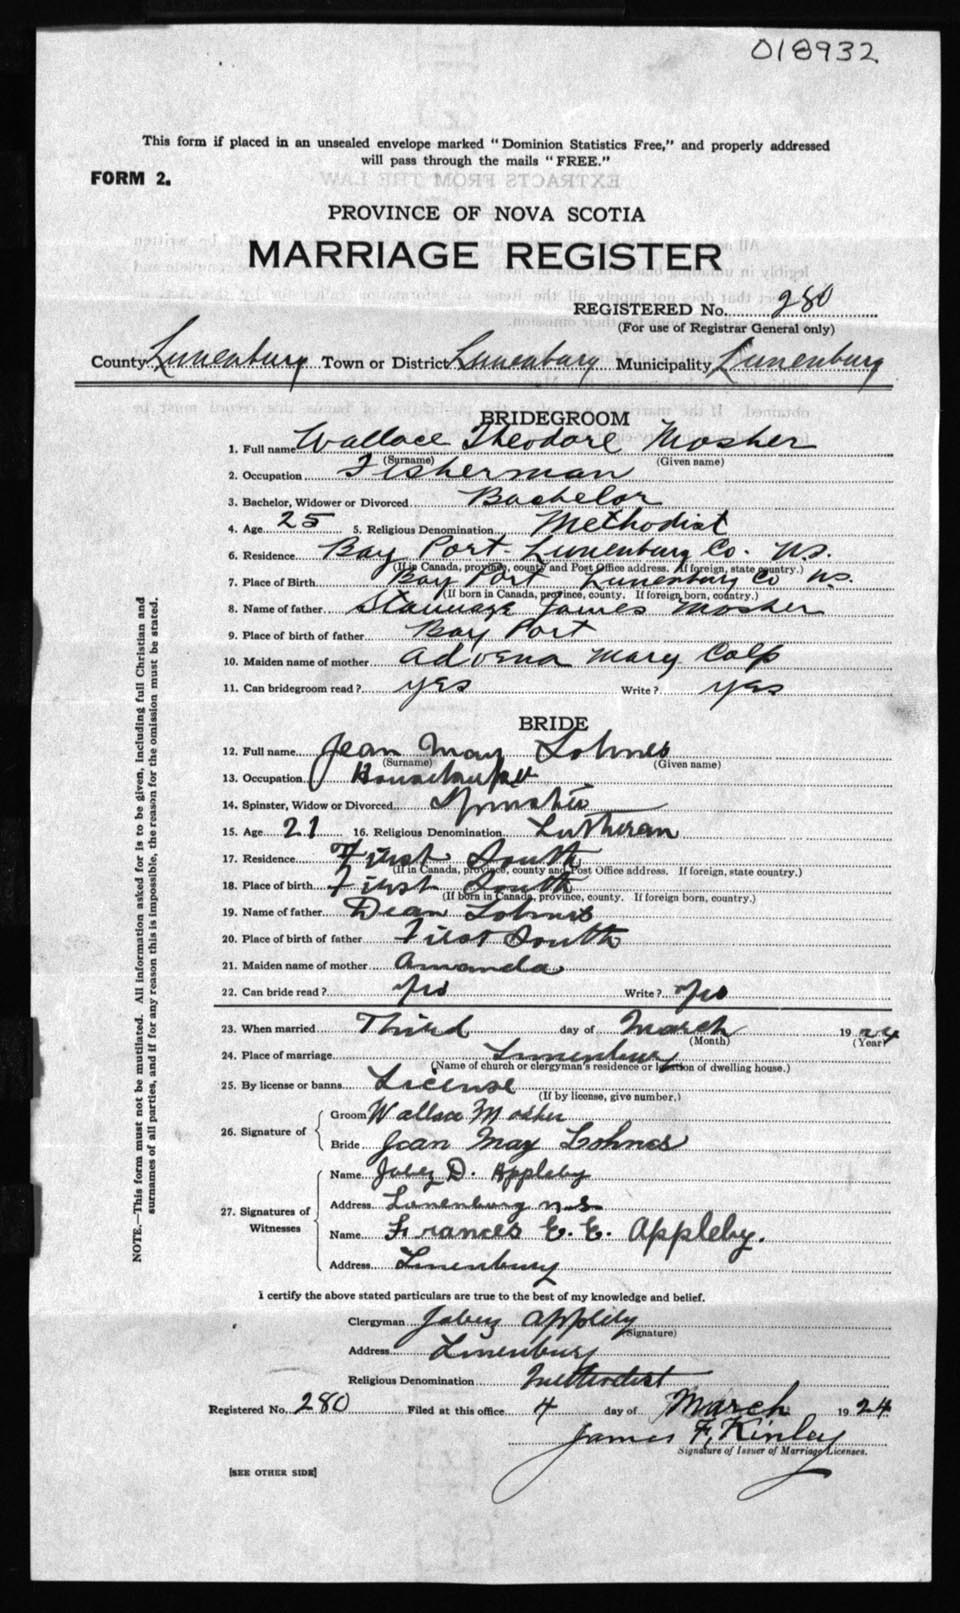 018932
This form if placed in an unsealed envelope marked "Dominion Statistics Free," and properly addressed
will pass through the mails "FREE."
FORM 2.
PROVINCE OF NOVA SCOTIA
MARRIAGE REGISTER
REGISTERED No. 280
(For use of Registrar General only)
County Lunenburg Town or District Lunenburg Municipality Lunenburg
BRIDEGROOM
1. Full name Wallace Theodore Mosher
(Surname) (Given name)
2. Occupation Fisherman
3. Bachelor, Widower or Divorced Bachelor
4. Age 25 5. Religious Denomination Methodist
6. Residence Bay Port - Lunenburg Co. N.S.
(If in Canada, province, county and Post Office address. If foreign, state country.)
7. Place of Birth Bay Port Lunenburg Co N.S.
(If born in Canada, province, county. If foreign born, country.)
8. Name of father James Mosher
9. Place of birth of father Bay Port
10. Maiden name of mother Advena Mary Colp
11. Can bridegroom read? yes Write? yes
BRIDE
12. Full name Jean May Lohnes
(Surname) (Given name)
13. Occupation
14. Spinster, Widow or Divorced Spinster
15. Age 21 16. Religious Denomination Lutheran
17. Residence First South
(If in Canada, province, county and Post Office address. If foreign, state country.)
18. Place of birth First South
(If born in Canada, province, county. If foreign born, country.)
19. Name of father Dean Lohnes
20. Place of birth of father First South
21. Maiden name of mother Amanda
22. Can bride read? Yes Write? Yes
23. When married Third day of March 1924
(Month) (Year)
24. Place of marriage Lunenburg
(Name of church or clergyman's residence or location of dwelling house.)
25. By license or banns License
(If by license, give number.)
26. Signature of
Groom Wallace Mosher
Bride Jean May Lohnes
27. Signatures of Witnesses
Name Jabez D. Appleby
Address Lunenburg N.S.
Name Frances E. E. Appleby.
Address Lunenburg
I certify the above stated particulars are true to the best of my knowledge and belief.
Clergyman Jabez Appleby
(Signature)
Address Lunenburg
Religious Denomination Methodist
Registered No. 280 Filed at this office 4 day of March 1924
James F. Kinley
Signature of Issuer of Marriage Licenses.
[SEE OTHER SIDE]
NOTE.—This form must not be mutilated. All information asked for is to be given, including full Christian and
surnames of all parties, and if for any reason this is impossible, the reason for the omission must be stated.